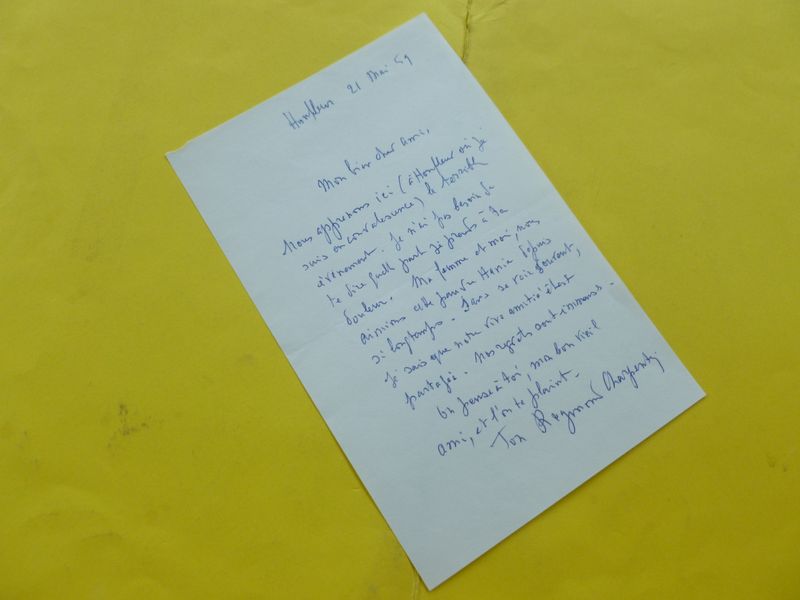 Honfleur 21 Mai 59
Mon bien cher ami,
Nous apprenons ici (à Honfleur où je
suis en convalescence) le terrible
évènement. Je n'ai pas besoin de
te dire quelle part je prends à ta
douleur. Ma femme et moi, nous
aimions cette pauvre depuis
si longtemps. Sans se voir souvent,
je sais que notre vive amitié était
partagée. Nos regrets sont immenses.
On pense à toi, mon bon vieil
ami, et l'on te plaint.
Ton Raymond Charpentier